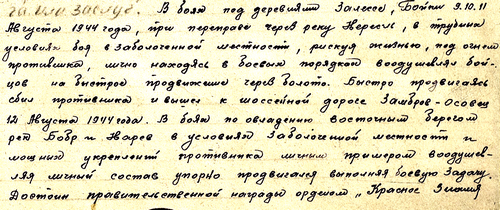 заслуг. В боях под деревнями Залесье, Бойки 9.10.11
Августа 1944 года, при переправе через реку Нересль, в трудных
условиях боя в заболоченной местности, рискуя жизнью, под огнем
противника, лично находясь в боевых порядках воодушевлял бой-
цов на быстрое продвижение через болото. Быстро продвигаясь
сбил противника и вышел к шоссейной дороге Замбров-Осовец
12 Августа 1944 года. В боях по овладению восточным берегом
рек Бобр и Нарев в условиях заболоченной местности и
мощных укреплений противника личным примером воодушев-
ляя личный состав упорно продвигался выполняя боевую задачу.
Достоин правительственной награды орденом „Красное Знамя